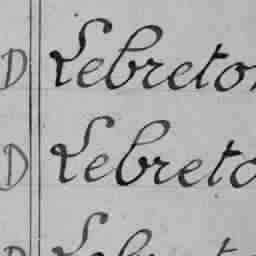 D Lebreton
D Lebreto